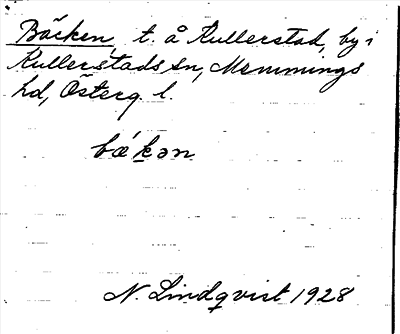 Bäcken, t. å Kullerstad, by i
Kullerstads sn, Memmings
hd, Österg. l.
bǽkən
N. Lindqvist 1928